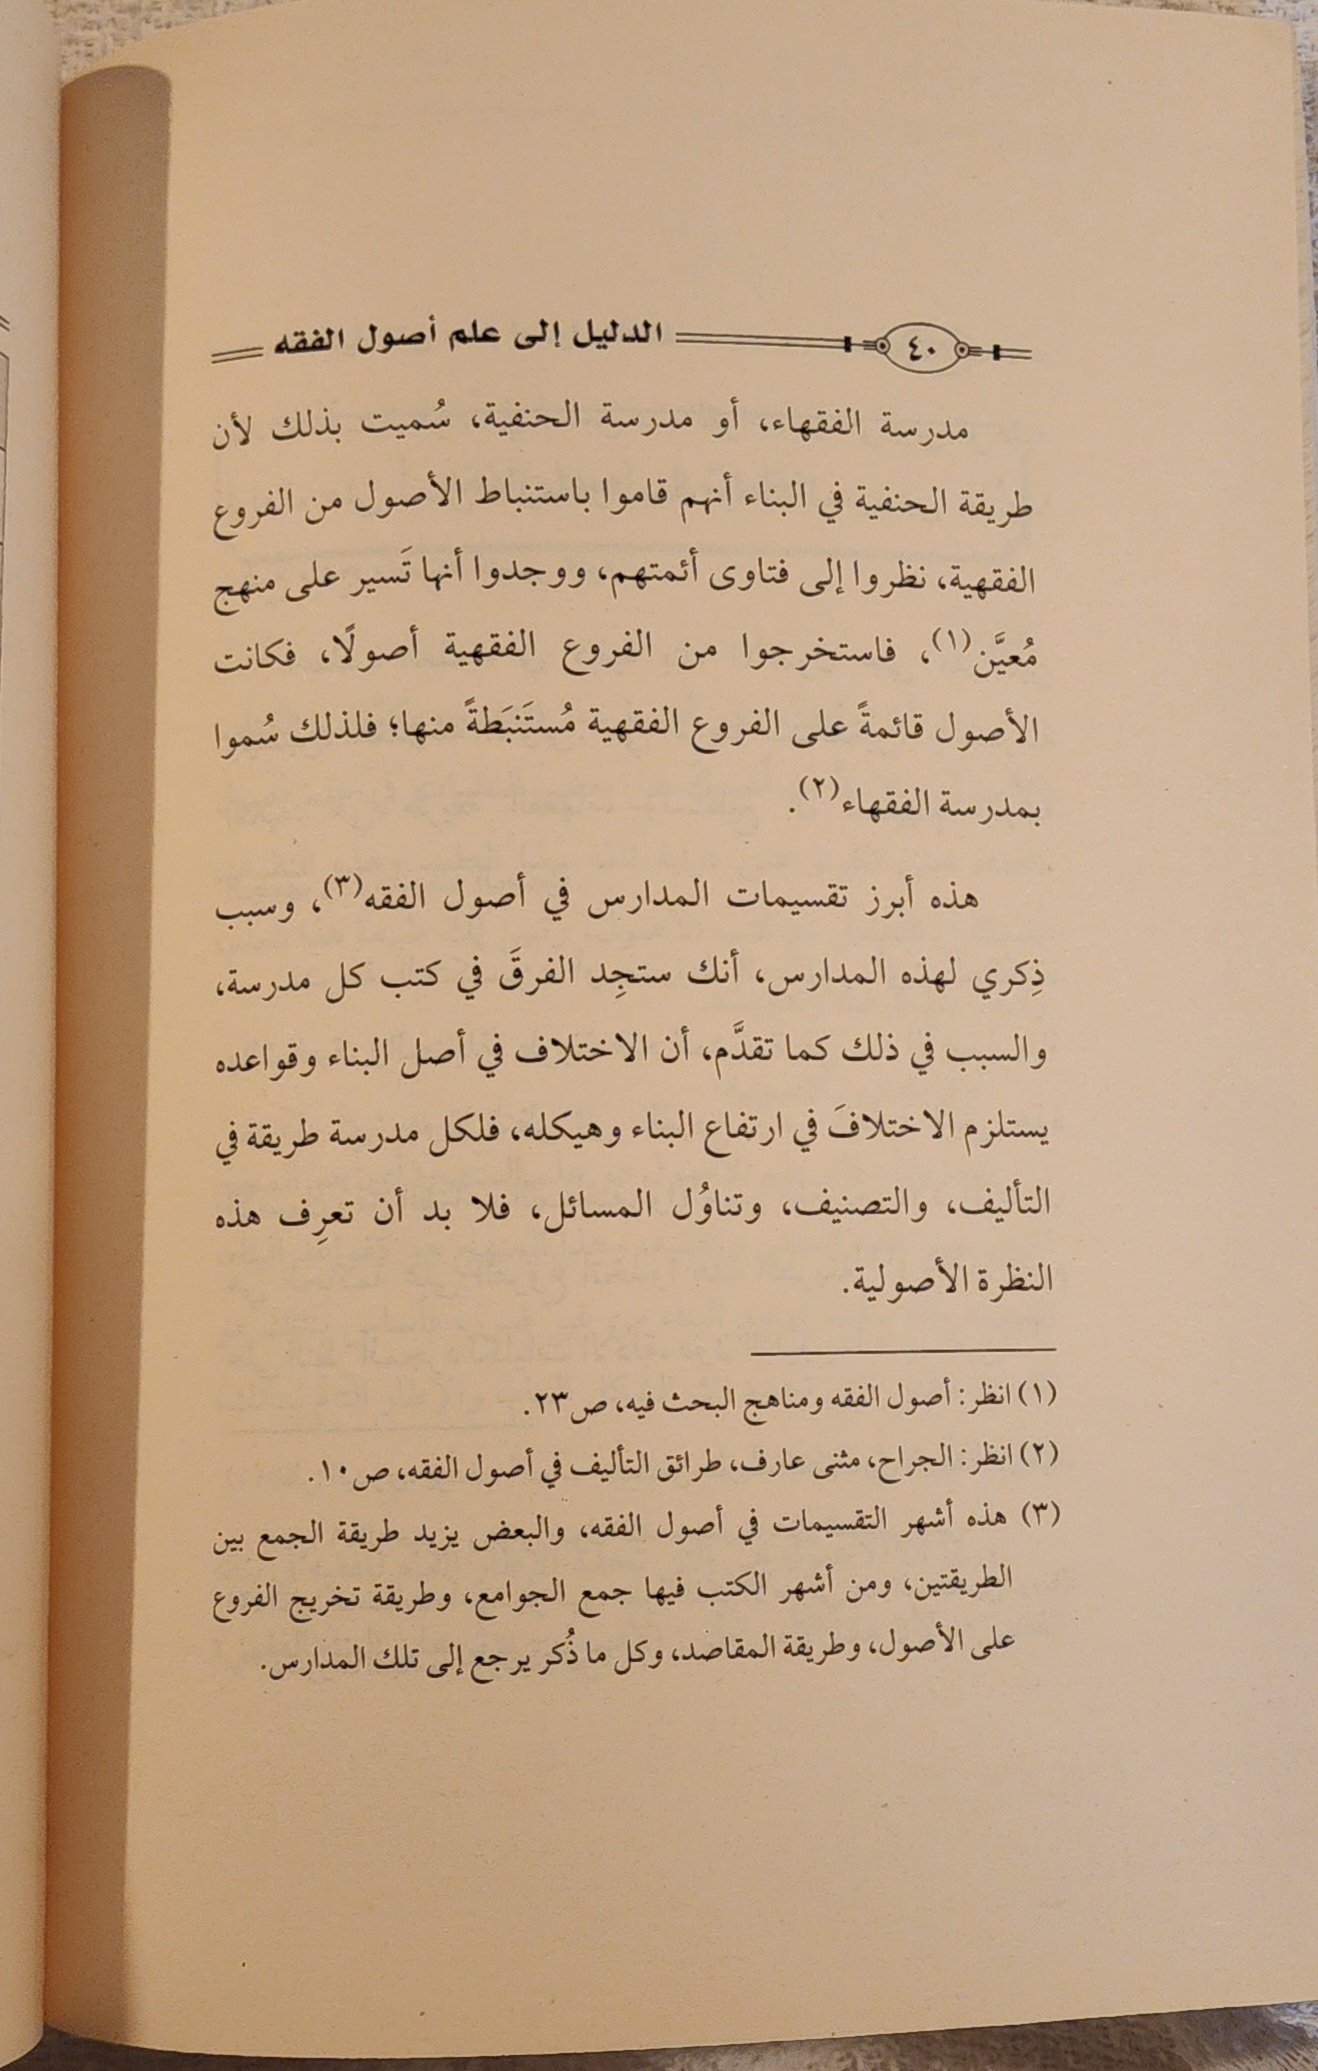 ٤٠ الدليل إلى علم أصول الفقه
مدرسة الفقهاء، أو مدرسة الحنفية، سُميت بذلك لأن
طريقة الحنفية في البناء أنهم قاموا باستنباط الأصول من الفروع
الفقهية، نظروا إلى فتاوى أئمتهم، ووجدوا أنها تَسير على منهج
مُعيَّن(١)، فاستخرجوا من الفروع الفقهية أصولًا، فكانت
الأصول قائمةً على الفروع الفقهية مُستَنبَطةً منها؛ فلذلك سُموا
بمدرسة الفقهاء(٢).
هذه أبرز تقسيمات المدارس في أصول الفقه(٣)، وسبب
ذِكري لهذه المدارس، أنك ستجِد الفرقَ في كتب كل مدرسة،
والسبب في ذلك كما تقدَّم، أن الاختلاف في أصل البناء وقواعده
يستلزم الاختلافَ في ارتفاع البناء وهيكله، فلكل مدرسة طريقة في
التأليف، والتصنيف، وتناوُل المسائل، فلا بد أن تعرِف هذه
النظرة الأصولية.
(١) انظر: أصول الفقه ومناهج البحث فيه، ص٢٣.
(٢) انظر: الجراح، مثنى عارف، طرائق التأليف في أصول الفقه، ص١٠.
(٣) هذه أشهر التقسيمات في أصول الفقه، والبعض يزيد طريقة الجمع بين
الطريقتين، ومن أشهر الكتب فيها جمع الجوامع، وطريقة تخريج الفروع
على الأصول، وطريقة المقاصد، وكل ما ذُكر يرجع إلى تلك المدارس.